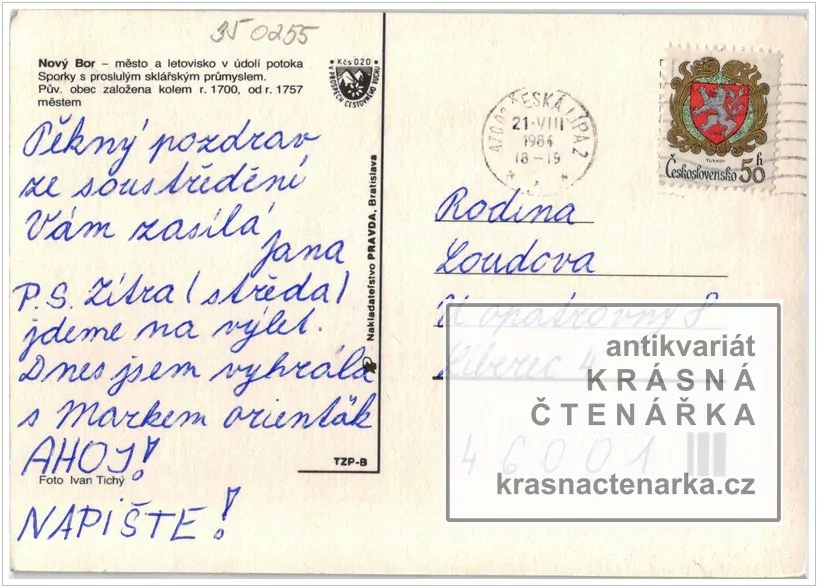 35 0255
Nový Bor – město a letovisko v údolí potoka
Sporky s proslulým sklářským průmyslem.
Pův. obec založena kolem r. 1700, od r. 1757
městem
Kčs 0.20
V PROSPĚCH CESTOVNÉHO RUCHU
Pěkný pozdrav
ze soustředění
Vám zasílá
Jana
P.S. Zítra (středa)
jdeme na výlet.
Dnes jsem vyhrála
s Markem orienťák
AHOJ!
NAPIŠTE!
Foto Ivan Tichý
TZP-B
Nakladateľstvo PRAVDA, Bratislava
470 02 ČESKÁ LÍPA 2
21-VIII
1984
18-19
TURNOV
Československo 50 h
Rodina
Loudova
U opatrovny 8
Liberec 4
46001
antikvariát
KRÁSNÁ
ČTENÁŘKA
krasnactenarka.cz